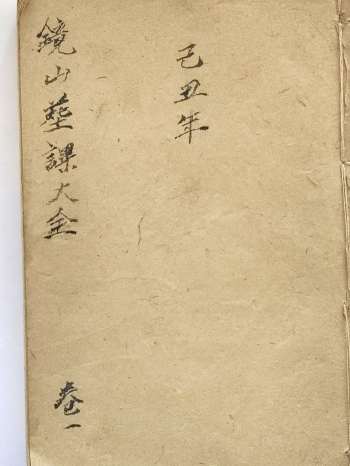 己丑年
鏡山塟課大全
卷一